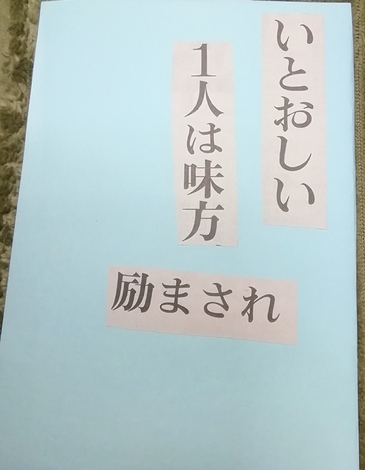 いとおしい
１人は味方
励まされ